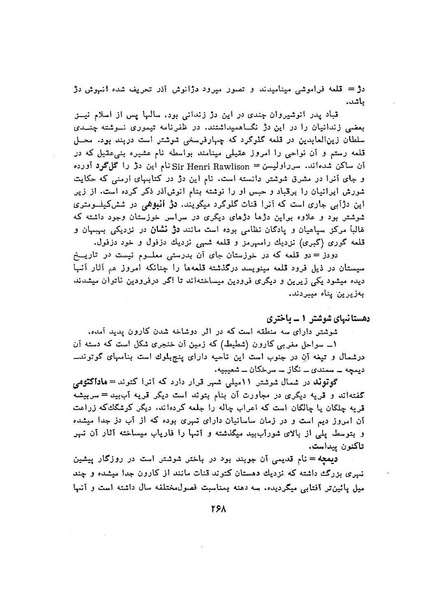 دژ = قلعه فراموشی مینامیدند و تصور میرود دژانوش آذر تحریف شده انهوش دژ
باشد.
قباد پدر انوشیروان چندی در این دژ زندانی بود. سالها پس از اسلام نیز
بعضی زندانیان را در این دژ نگاهمیداشتند. در ظفرنامه تیموری نوشته چندی
سلطان زین‌العابدین در قلعه گردکه چهارفرسخی شوشتر است دربند بود. محل
قلعه رستم و آن نواحی را امروز عقیلی مینامند بواسطه نام عشیره بنی‌عقیل که در
آن ساکن شده‌اند. سرراولیس = Sir Henri Rawlison نام این دژ را گل‌گرد آورده
و جای آنرا در مشرق شوشتر دانسته است. نام این دژ در کتابهای ارمنی که حکایت
شورش ایرانیان را برقباد و حبس او را نوشته بنام انوش‌آذر ذکر کرده است. از زیر
این دژآبی جاری است که آنرا قنات گلوگرد میگویند. دژ آنبوهی در شش‌کیلومتری
شوشتر بود و علاوه براین دژها دژهای دیگری در سراسر خوزستان وجود داشته که
غالباً مرکز سپاهیان و پادگان نظامی بوده است مانند دژ نشان در نزدیکی بهبهان و
قلعه گوری (گبری) نزدیک رامهرمز و قلعه شهی نزدیک دزفول و خود دزفول.
دودز = دو قلعه که در خوزستان جای آن بدرستی معلوم نیست در تاریخ
سیستان در ذیل فرود قلعه مینویسد درگذشته قلعه‌ها را چنانکه امروز هم آثار آنها
دیده میشود یکی زیرین و دیگری فرودین میساخته‌اند تا اگر درفرودین ناتوان میشدند
به‌زیرین پناه میبردند.
دهستانهای شوشتر ۱ – باختری
شوشتر دارای سه منطقه است که در اثر دوشاخه شدن کارون پدید آمده.
۱– سواحل مغربی کارون (شطیط) که زمین آن خنجری شکل است که دسته آن
درشمال و تیغه آن در جنوب است این ناحیه دارای پنج‌بلوک است بنامهای گوتوند–
دیمچه – سمندی – نگاز – سرخکان – شعیبیه.
گوتوند در شمال شوشتر ۱۱میلی شهر قرار دارد که آنرا کتوند = ماداکتومی
گفته‌اند و قریه دیگری در مجاورت آن بنام بتوند است دیگر قریه آب‌بید – سربیشه
قریه چلکان یا چالکان است که اعراب چاله را جلعه کرده‌اند. دیگر کرشگک‌که زراعت
آن امروز دیم است و در زمان ساسانیان دارای نهری بوده که از آب دز جدا میشده
و بتوسط پلی از بالای شورآب‌بید میگذشته و آنها را فاریاب میساخته آثار آن نهر
تاکنون پیداست.
دیمچه = نام قدیمی آن جوبند بود در باختر شوشتر است در روزگار پیشین
نهری بزرگ داشته که نزدیک دهستان کتوند قنات مانند از کارون جدا میشده و چند
میل پائین‌تر آفتابی میگردیده. سه دهنه بمناسبت فصول‌مختلفه سال داشته است و آنها
۲۶۸